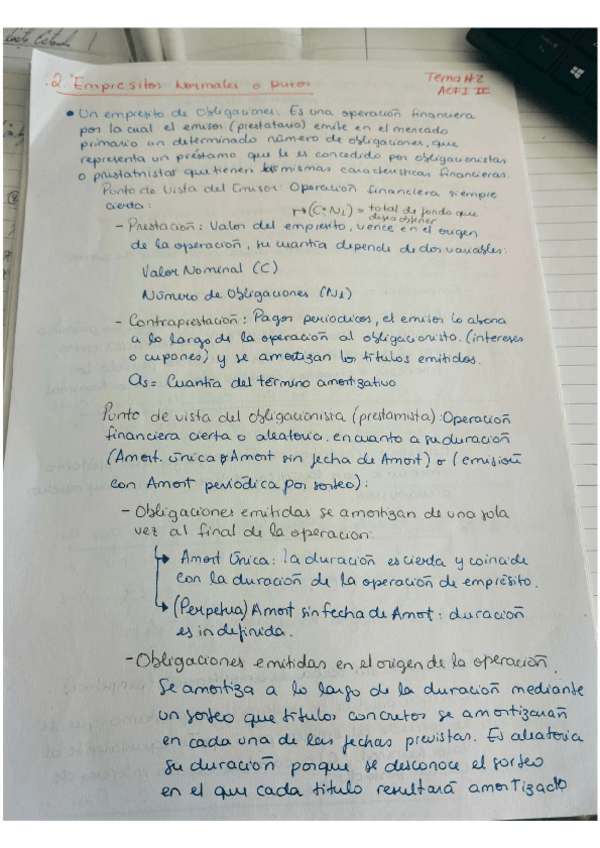 2. Empresitos Normales o Puros
Tema #2
ACFI II
• Un empresito de obligaciones: Es una operación financiera
por la cual el emisor (prestatario) emite en el mercado
primario un determinado número de obligaciones, que
representa un préstamo que le es concedido por obligacionistas
o prestatnistas que tienen las mismas características financieras.
Punto de vista del Emisor: Operación financiera siempre
cierta:
→ (C·N1) = total de fondo que
desea obtener
- Prestación: Valor del empresito, vence en el origen
de la operación, su cuantía depende de dos variables:
Valor Nominal (C)
Número de Obligaciones (N1)
- Contraprestación: Pagos periodicos, el emisor lo abona
a lo largo de la operación al obligacionista. (intereses
o cupones) y se amortizan los títulos emitidos.
as = Cuantía del término amortizativo
Punto de vista del obligacionista (prestamista): Operación
financiera cierta o aleatoria. en cuanto a su duración
(Amort. única o Amort sin fecha de Amort) o (emisión
con Amort periódica por sorteo):
- Obligaciones emitidas se amortizan de una sola
vez al final de la operacion:
→ Amort Única: la duración es cierta y coincide
con la duración de la operación de empresito.
→ (Perpetua) Amort sin fecha de Amot: duración
es indefinida.
- Obligaciones emitidas en el origen de la operación
Se amortiza a lo largo de la duración mediante
un sorteo que títulos concretos se amortizarán
en cada una de las fechas previstas. Es aleatoria
su duración porque se desconoce el sorteo
en el que cada titulo resultará amortizado